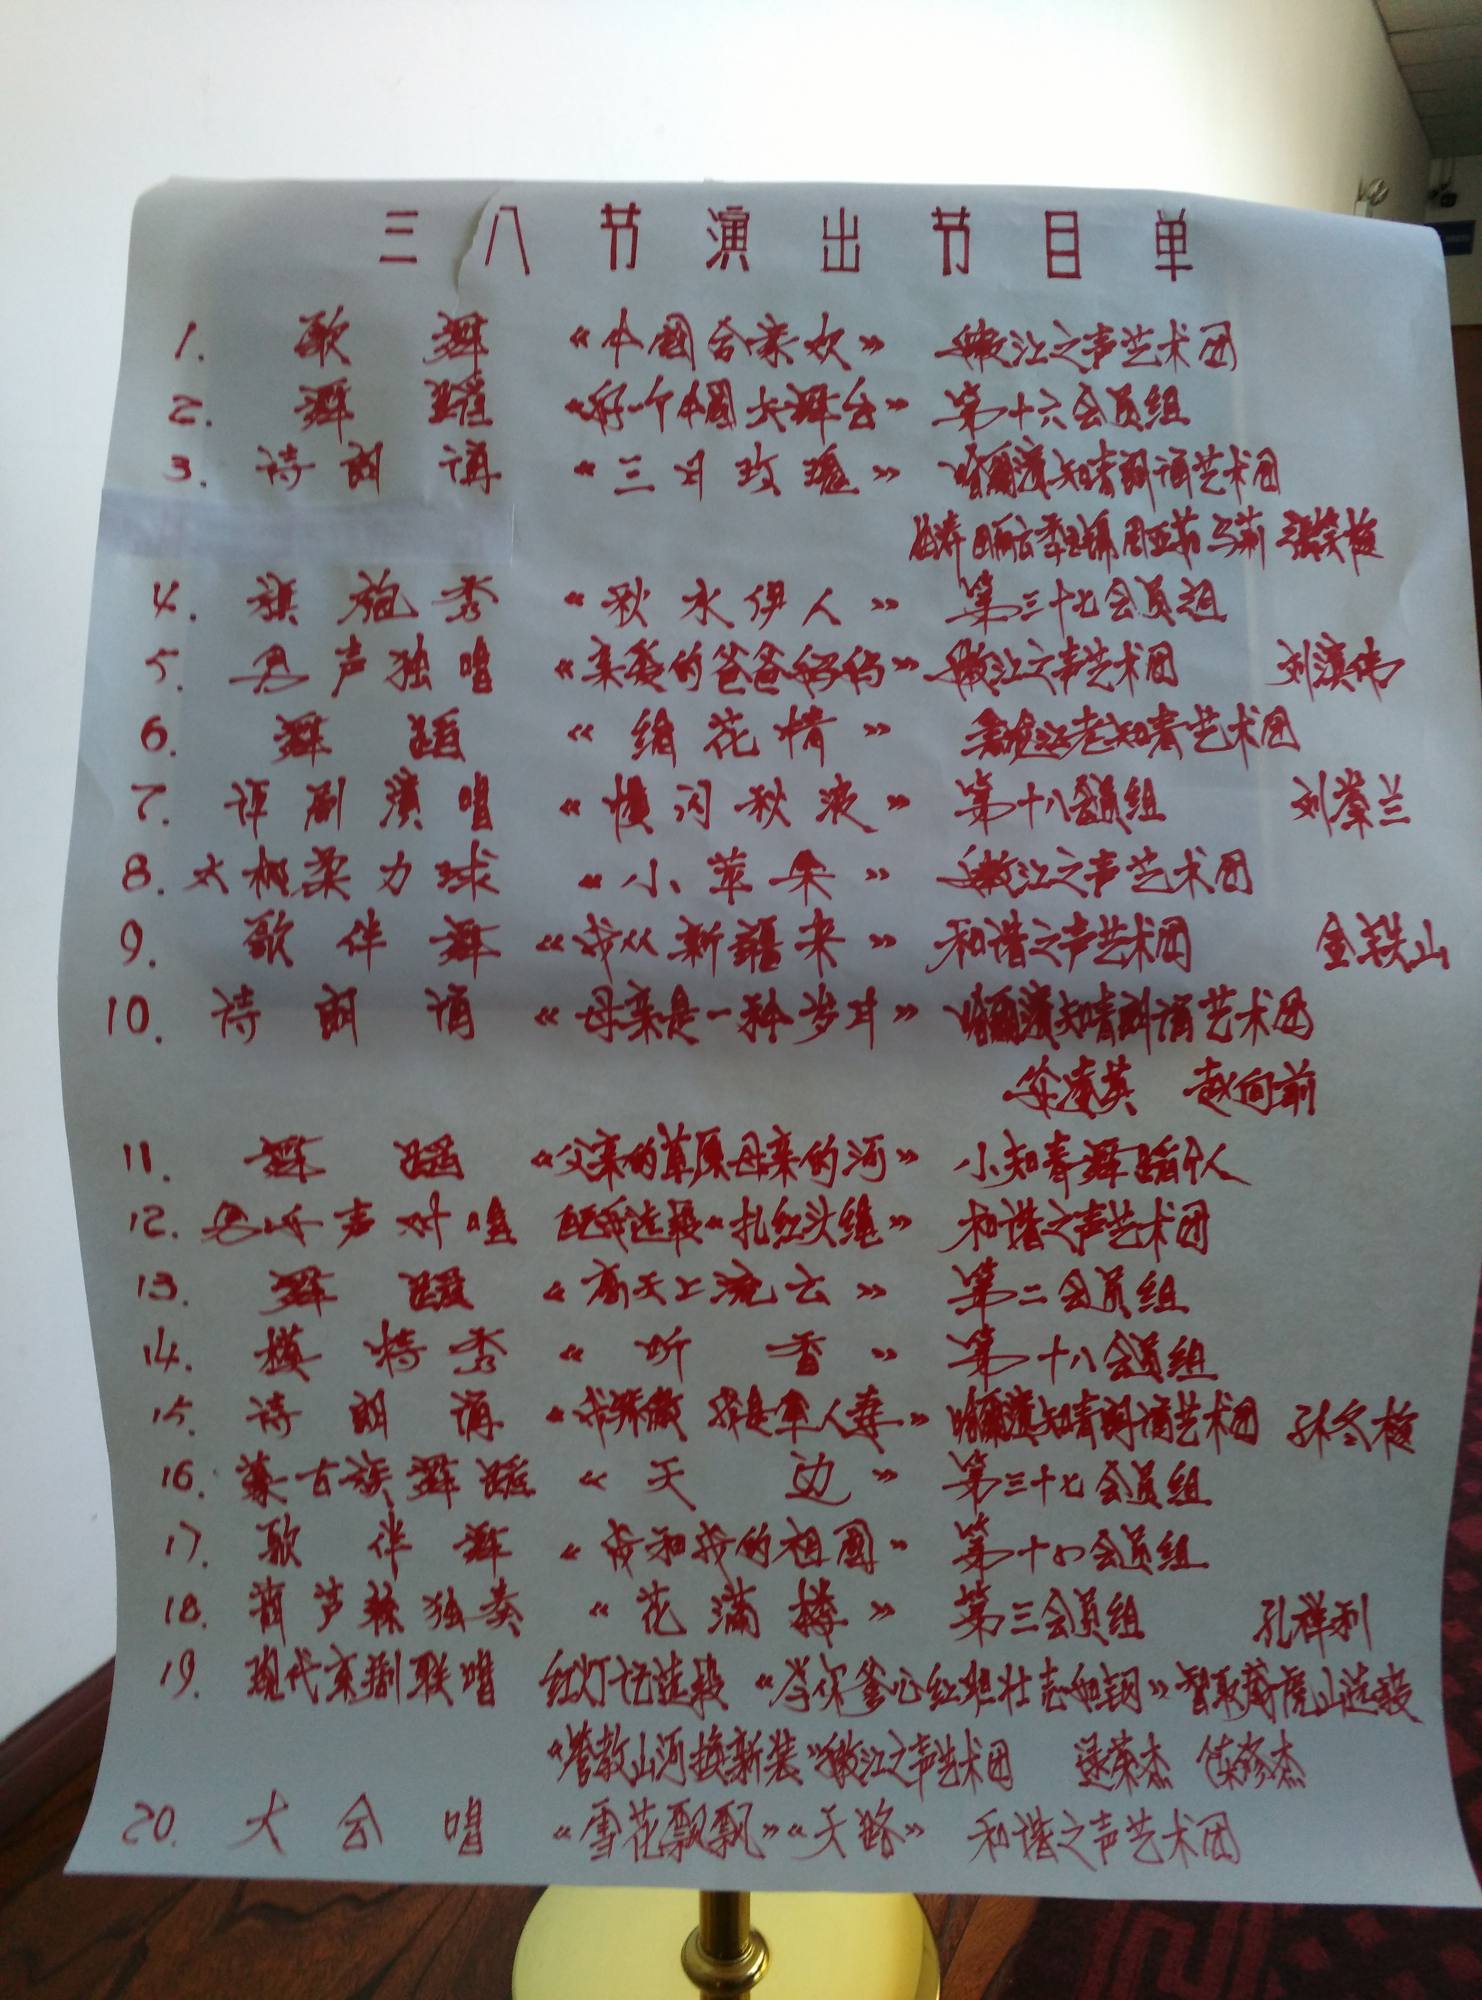 三八节演出节目单
1. 歌舞 《中国合家欢》 嫩江之声艺术团
2. 舞蹈 《好一个中国大舞台》 第十六会员组
3. 诗朗诵 《三月玫瑰》 哈尔滨知青朗诵艺术团
4. 旗袍秀 《秋水伊人》 第三十七会员组
5. 男声独唱 《亲爱的爸爸妈妈》 嫩江之声艺术团 刘滨伟
6. 舞蹈 《绢花情》 黑龙江老知青艺术团
7. 评剧演唱 《慢闪秋波》 第十八会员组 刘棠兰
8. 太极柔力球 《小苹果》 嫩江之声艺术团
9. 歌伴舞 《我从新疆来》 和谐之声艺术团 金铁山
10. 诗朗诵 《母亲是一种岁月》 哈尔滨知青朗诵艺术团
赵向前
11. 舞蹈 《父亲的草原母亲的河》 小知青舞蹈个人
12. 男女声对唱 选段《扎红头绳》 和谐之声艺术团
13. 舞蹈 《高天上流云》 第二会员组
14. 模特秀 《听香》 第十八会员组
15. 诗朗诵 《我骄傲 我是军人妻》 哈尔滨知青朗诵艺术团 孙冬梅
16. 蒙古族舞蹈 《天边》 第三十七会员组
17. 歌伴舞 《我和我的祖国》 第十六会员组
18. 葫芦丝独奏 《花满楼》 第三会员组 孔祥利
19. 现代京剧联唱 红灯记选段 《浑身是胆壮志如钢》 智取威虎山选段
《管教山河换新装》 嫩江之声艺术团 逯荣杰
20. 大合唱 《雪花飘飘》《天路》 和谐之声艺术团